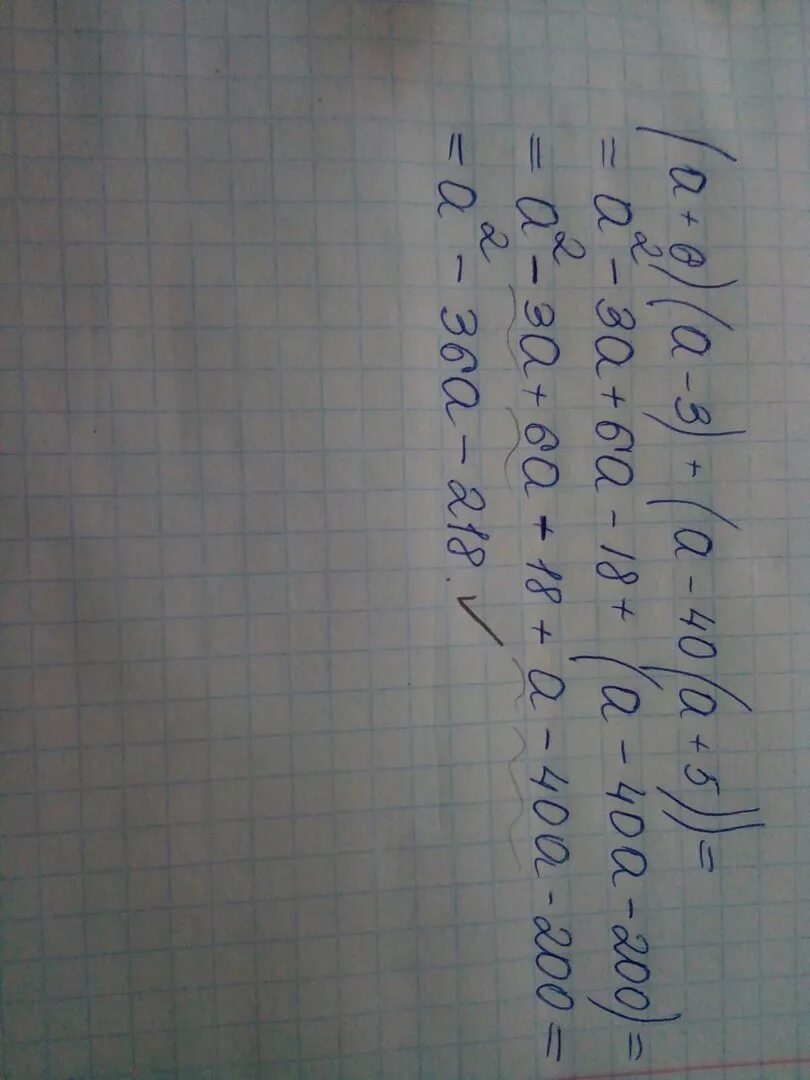 (a+6)(a-3)+(a-40(a+5))=
=a²-3a+6a-18+(a-40a-200)=
=a²-3a+6a+18+a-40a-200=
=a²-36a-218.